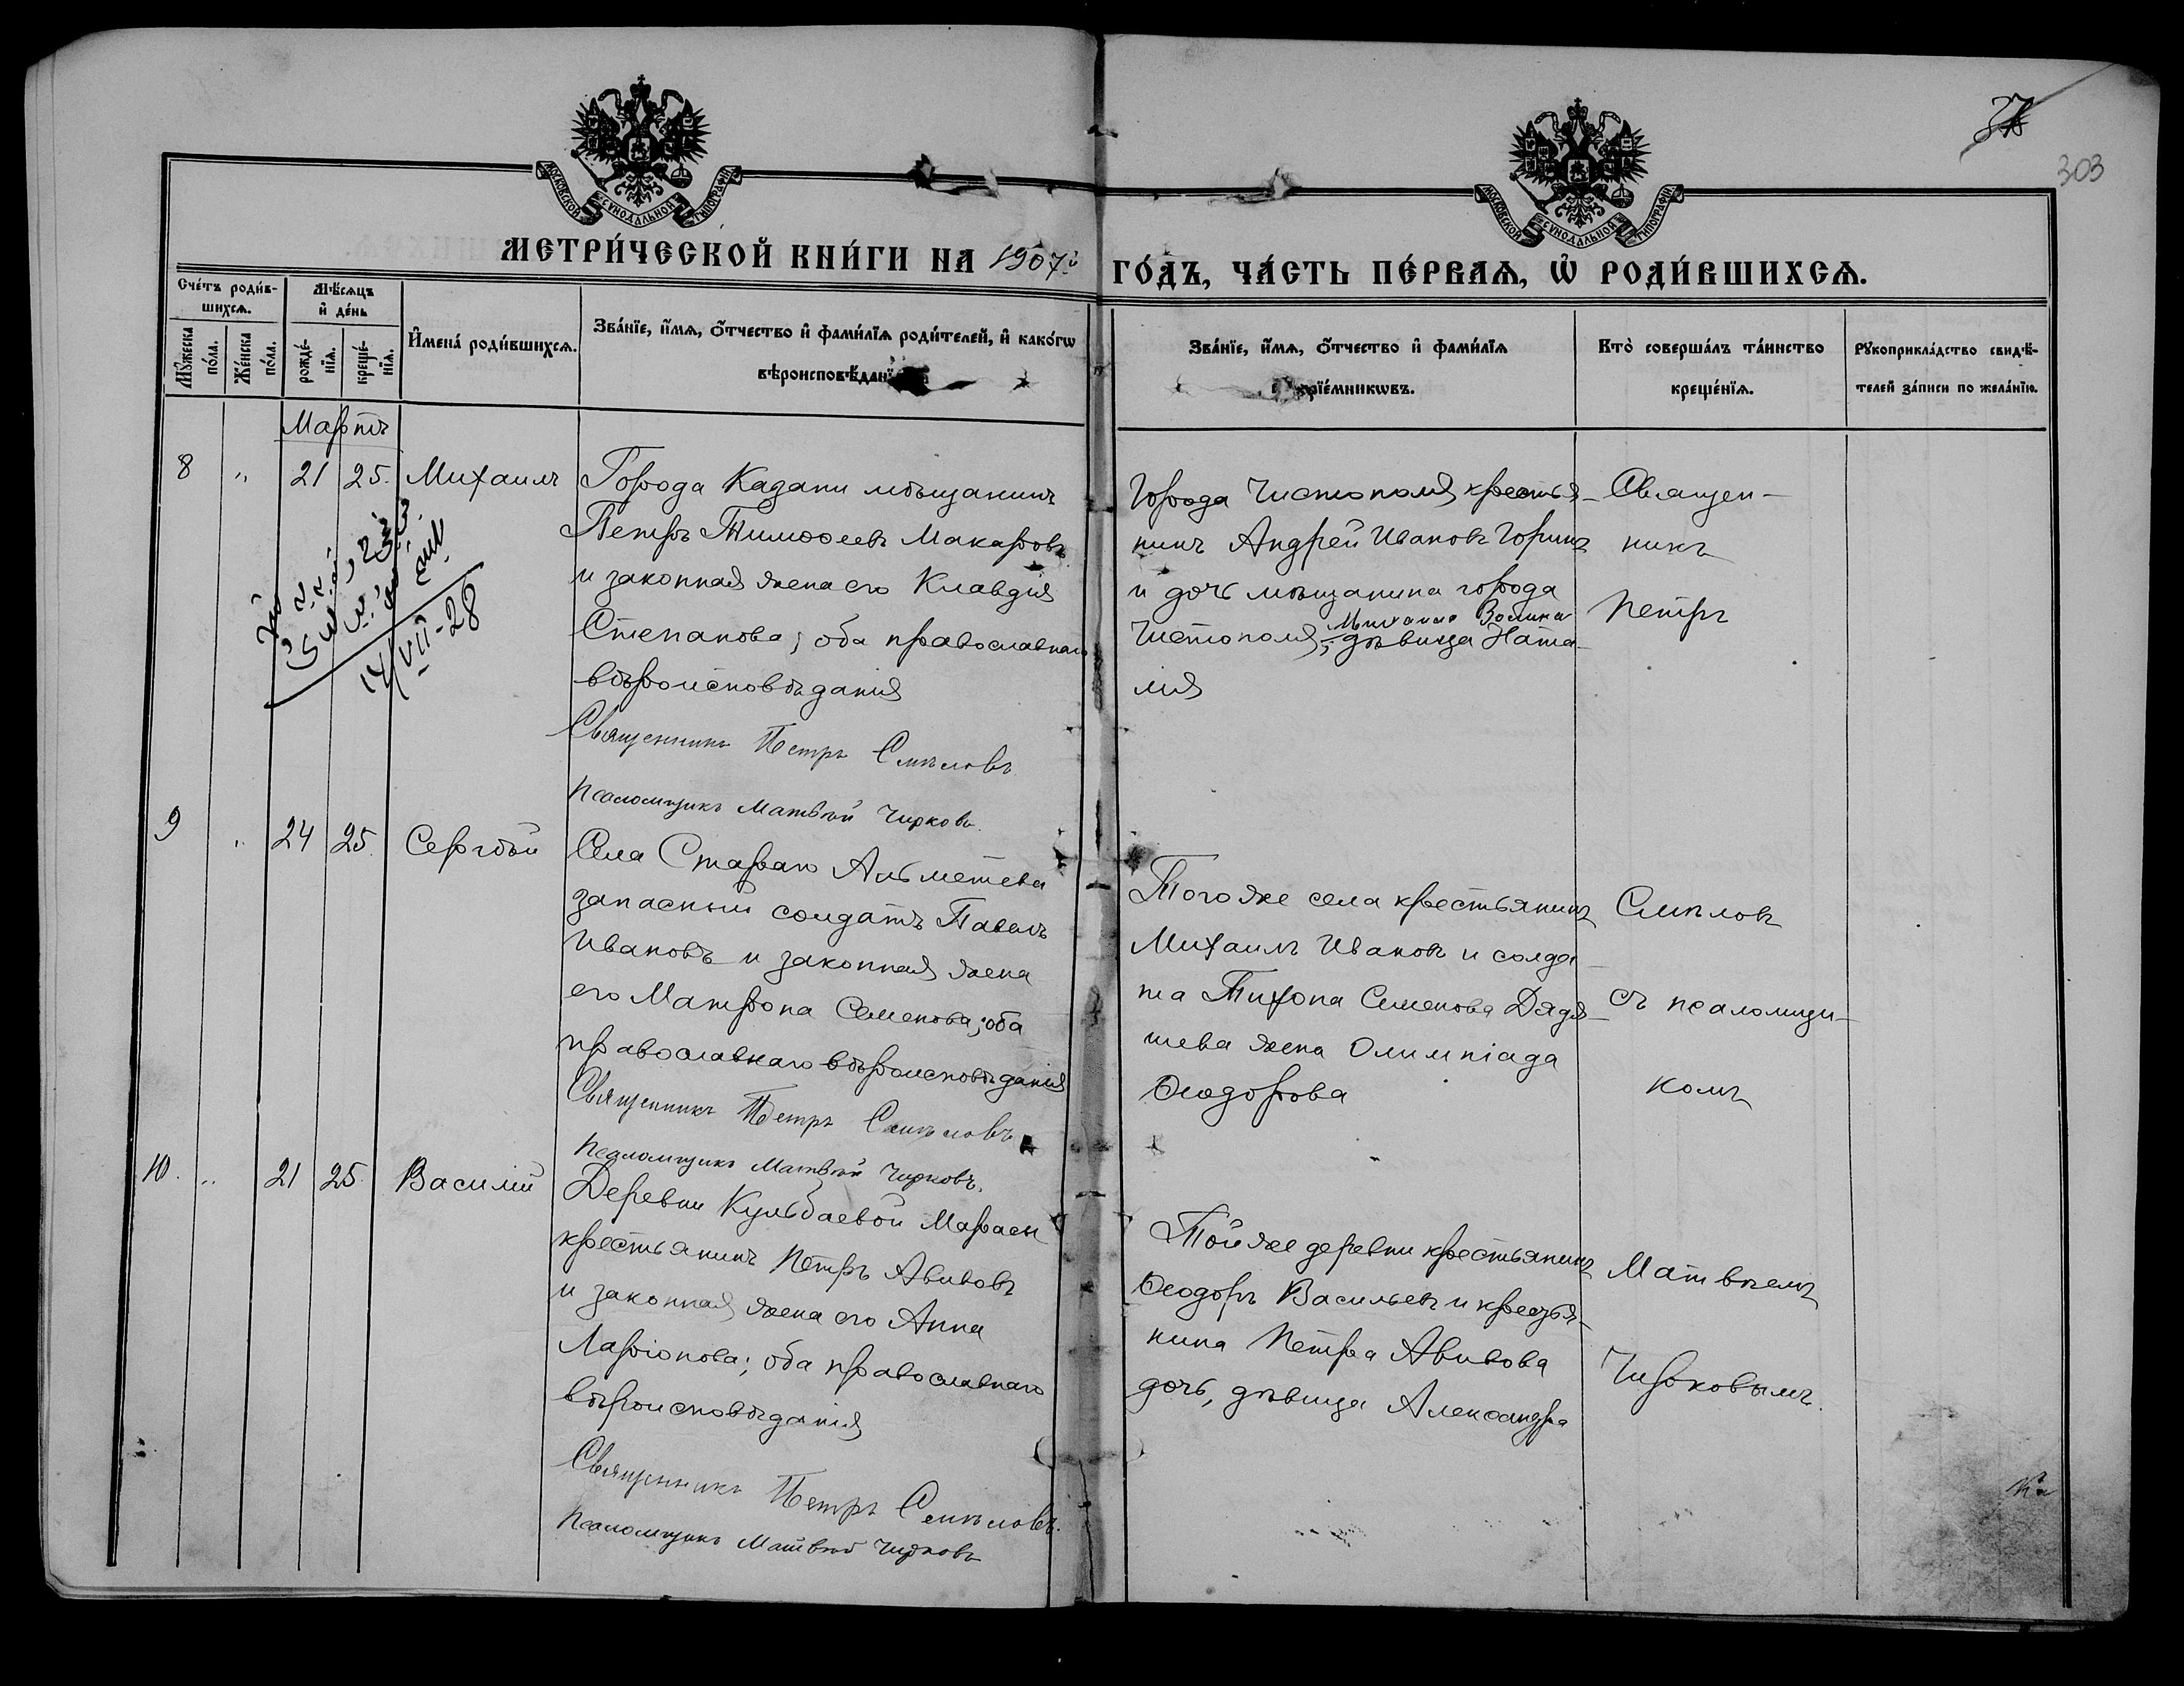 37
303
МОСКОВСКОЙ СѴНОДАЛЬНОЙ ТИПОГРАФІИ
МОСКОВСКОЙ СѴНОДАЛЬНОЙ ТИПОГРАФІИ
МЕТРИ́ЧЕСКОЙ КНИ́ГИ НА 1907й
ГО́ДЪ, ЧА́СТЬ ПЕ́РВАѦ, Ѡ҆ РОДИ́ВШИХСѦ.
Сче́тъ роди́в-
шихсѧ.
Мꙋ́жеска по́ла.
Же́нска по́ла.
Мѣ́сѧцъ
и҆ де́нь
рожде́-нїѧ.
креще́-нїѧ.
И҆мена̀ роди́вшихсѧ.
Зва́нїе, и҆́мѧ, ѻ҆́тчество и҆ фами́лїѧ роди́телей, и҆ како́гѡ
вѣроисповѣ́данї
Зва́нїе, и҆́мѧ, ѻ҆́тчество и҆ фами́лїѧ
прїе́мникѡвъ.
Кто̀ соверша́лъ та́инство
креще́нїѧ.
Рꙋкоприкла́дство свидѣ́-
телей за́писи по жела́нїю.
Мартъ
8 " 21 25. Михаилъ
Города Казани мѣщанинъ
Петръ Тимоѳеевъ Макаровъ
и законная жена его Клавдія
Степанова; оба православнаго
вѣроисповѣданія
Священникъ Петръ Смѣловъ
Псаломщикъ Матвѣй Чирковъ.
Города Чистополя крестья-
нинъ Андрей Ивановъ Горинъ
и дочь мѣщанина города
Чистополя, дѣвица Ната-
лія
14/VII-28
9 " 24 25. Сергѣй
Села Стараго Альметева
запасный солдатъ Павелъ
Ивановъ и законная жена
его Матрона Семенова; оба
православнаго вѣроисповѣданія
Священникъ Петръ Смѣловъ
Псаломщикъ Матвѣй Чирковъ.
Того же села крестьянинъ
Михаилъ Ивановъ и солда-
та Тихона Семенова Дядя-
шева жена Олимпіада
Ѳеодорова
10. " 21 25. Василій
Деревни Кульбаевой Марасы
крестьянинъ Петръ Авивовъ
и законная жена его Анна
Ларіонова; оба православнаго
вѣроисповѣданія
Священникъ Петръ Смѣловъ.
Псаломщикъ Матвѣй Чирковъ
Той же деревни крестьянинъ
Ѳеодоръ Васильевъ и крестья-
нина Петра Авивова
дочь, дѣвица Александра
Священ-
никъ
Петръ
Смѣловъ
съ псаломщи-
комъ
Матвѣемъ
Чирковымъ.